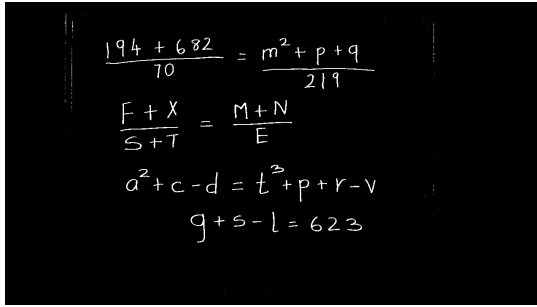 194 + 682 / 70 = m² + p + q / 219
F + X / S + T = M + N / E
a² + c - d = t³ + p + r - v
g + s - l = 623